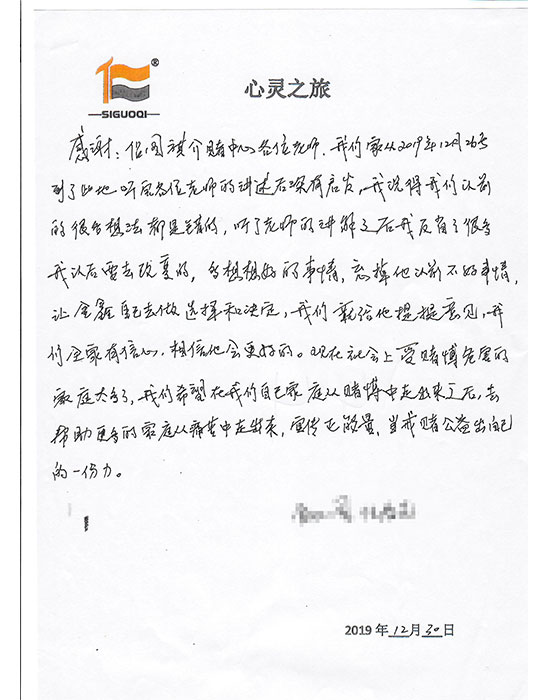 ®
SIGUOQI
心灵之旅
感谢：侣国祺介赌中心各位老师，我们家从2019年12月26号
到了此地 听取各位老师的讲述后深有启发，我觉得我们以前
的很多想法都是错的，听了老师的讲解之后我反省了很多
我以后要去改变的，多想想好的事情，忘掉他以前不好事情，
让金鑫自己去做选择和决定，我们就给他提提意见，我
们全家有信心，相信他会更好的。现在社会上受赌博危害的
家庭太多了，我们希望在我们自己家庭从赌博中走出来之后，去
帮助更多的家庭从痛苦中走出来，宣传正能量，当戒赌公益出自己
的一份力。
2019年12月30日